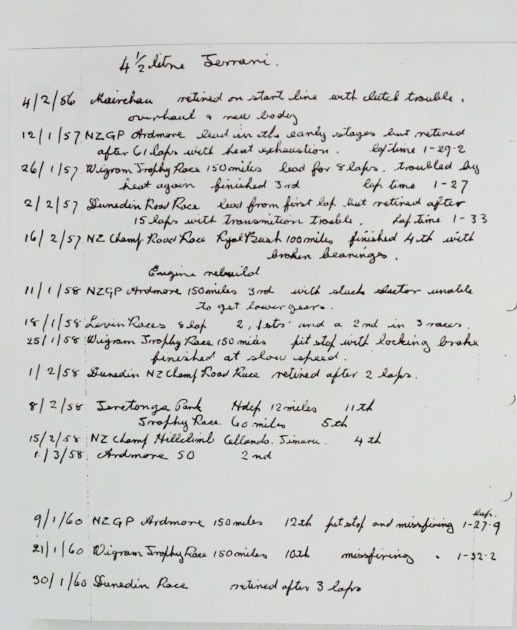 4 ½ litre Ferrari.
4/2/56 Mairehau retired on start line with clutch trouble.
overhaul & new body
12/1/57 NZGP Ardmore lead in the early stages but retired
after 61 laps with heat exhaustion. lap time 1-29-2
26/1/57 Wigram Trophy Race 150 miles lead for 8 laps, troubled by
heat again finished 3rd lap time 1-27
2/2/57 Dunedin Road Race lead from first lap but retired after
15 laps with transmition trouble. Lap time 1-33
16/2/57 NZ Champ Road Race Ryal Bush 100 miles finished 4th with
broken bearings.
Engine rebuild
11/1/58 NZGP Ardmore 150 miles 3rd with stuck selector unable
to get lower gears.
18/1/58 Levin Races 8 lap 2, 1sts and a 2nd in 3 races.
25/1/58 Wigram Trophy Race 150 miles pit stop with locking brake
finished at slow speed.
1/2/58 Dunedin NZ Champ Road Race retired after 2 laps.
8/2/58 Teretonga Park Hdcp 12 miles 11th
Trophy Race 60 miles 5th
15/2/58 NZ Champ Hillclimb Timaru. 4th
1/3/58 Ardmore 50 2nd
Lap.
9/1/60 NZGP Ardmore 150 miles 12th pit stop and missfiring 1-27-9
21/1/60 Wigram Trophy Race 150 miles 10th missfiring . 1-32-2
30/1/60 Dunedin Race retired after 3 laps